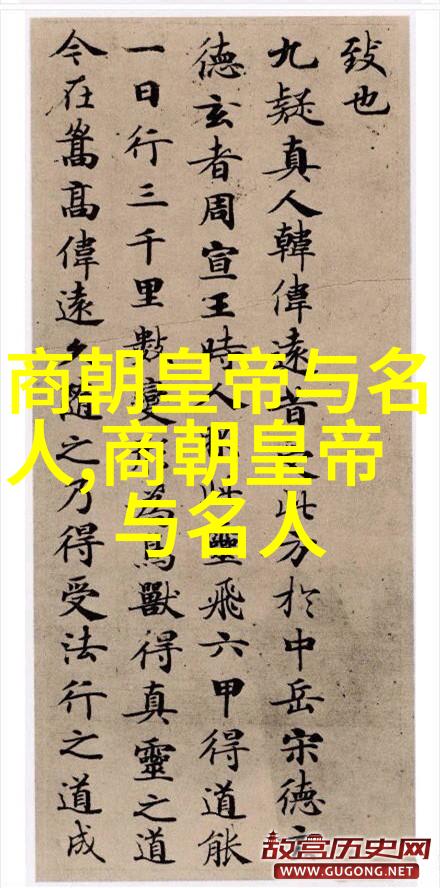 致也
九疑真人韓偉遠昔此方於中岳宋德
德玄者周宣王時人此靈飛六甲得道能
一日行三千里數變為鳥獸得真靈之道
今在嵩高偉遠久隨之乃得受法行之道成
商朝皇帝与名
人,商朝皇帝
与名人
故宫历史网
WWW.GUGONG.NET